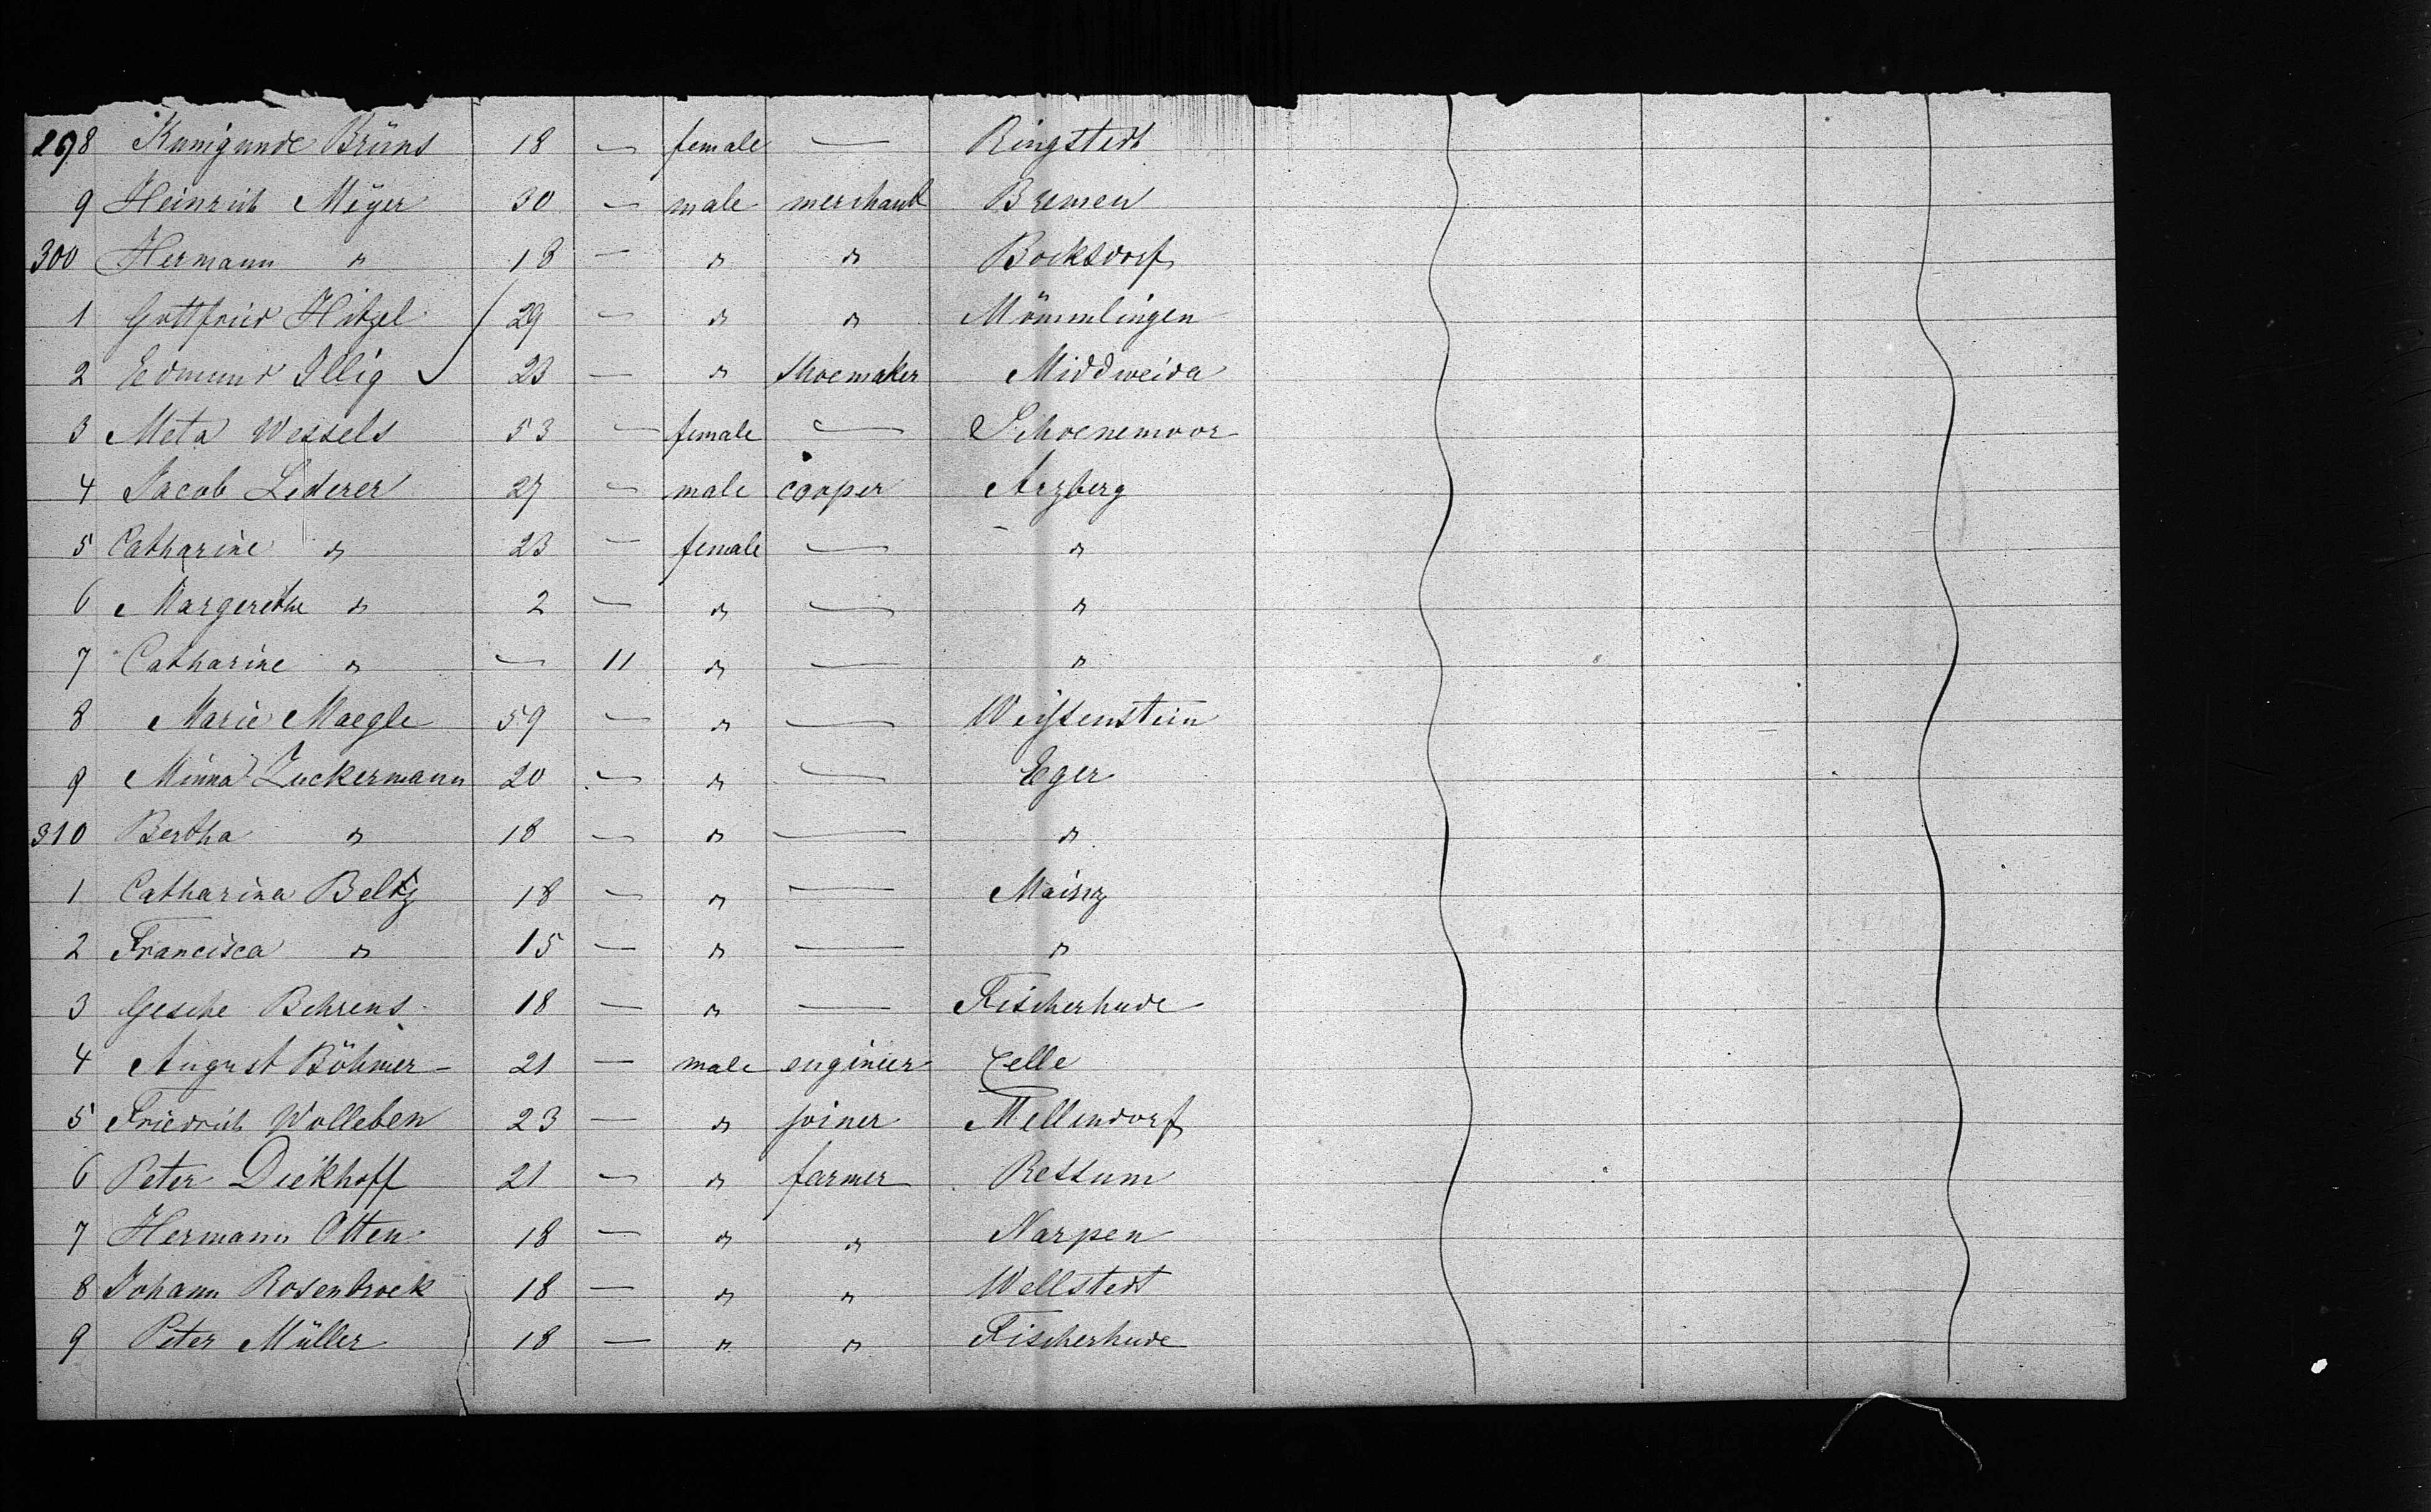 298 Kunigunde Brüns 18 — female — Ringstedt
9 Heinrich Meyer 30 — male merchant Bremen
300 Hermann " 18 — " " Bocksdorf
1 Gottfried Hitzel 29 — " " Mömmlingen
2 Edmund Illig 23 — " shoemaker Middweida
3 Meta Wessels 53 — female — Schoenemoor
4 Jacob Lederer 27 — male cooper Arzberg
5 Catharine " 23 — female — "
6 Margerethe " 2 — " — "
7 Catharine " — 11 " — "
8 Marie Maegle 59 — " — Weissenstein
9 Minna Zuckermann 20 — " — Eger
310 Bertha " 18 — " — "
1 Catharina Beltz 18 — " — Mainz
2 Francisca " 15 — " — "
3 Gesche Behrens 18 — " — Fischerhude
4 August Böhmer 21 — male engineer Celle
5 Friedrich Wolleben 23 — " joiner Mellendorf
6 Peter Dieckhoff 21 — " farmer Bessum
7 Hermann Otten 18 — " " Narpen
8 Johann Rosenbrock 18 — " " Wellstedt
9 Peter Müller 18 — " " Fischerhude